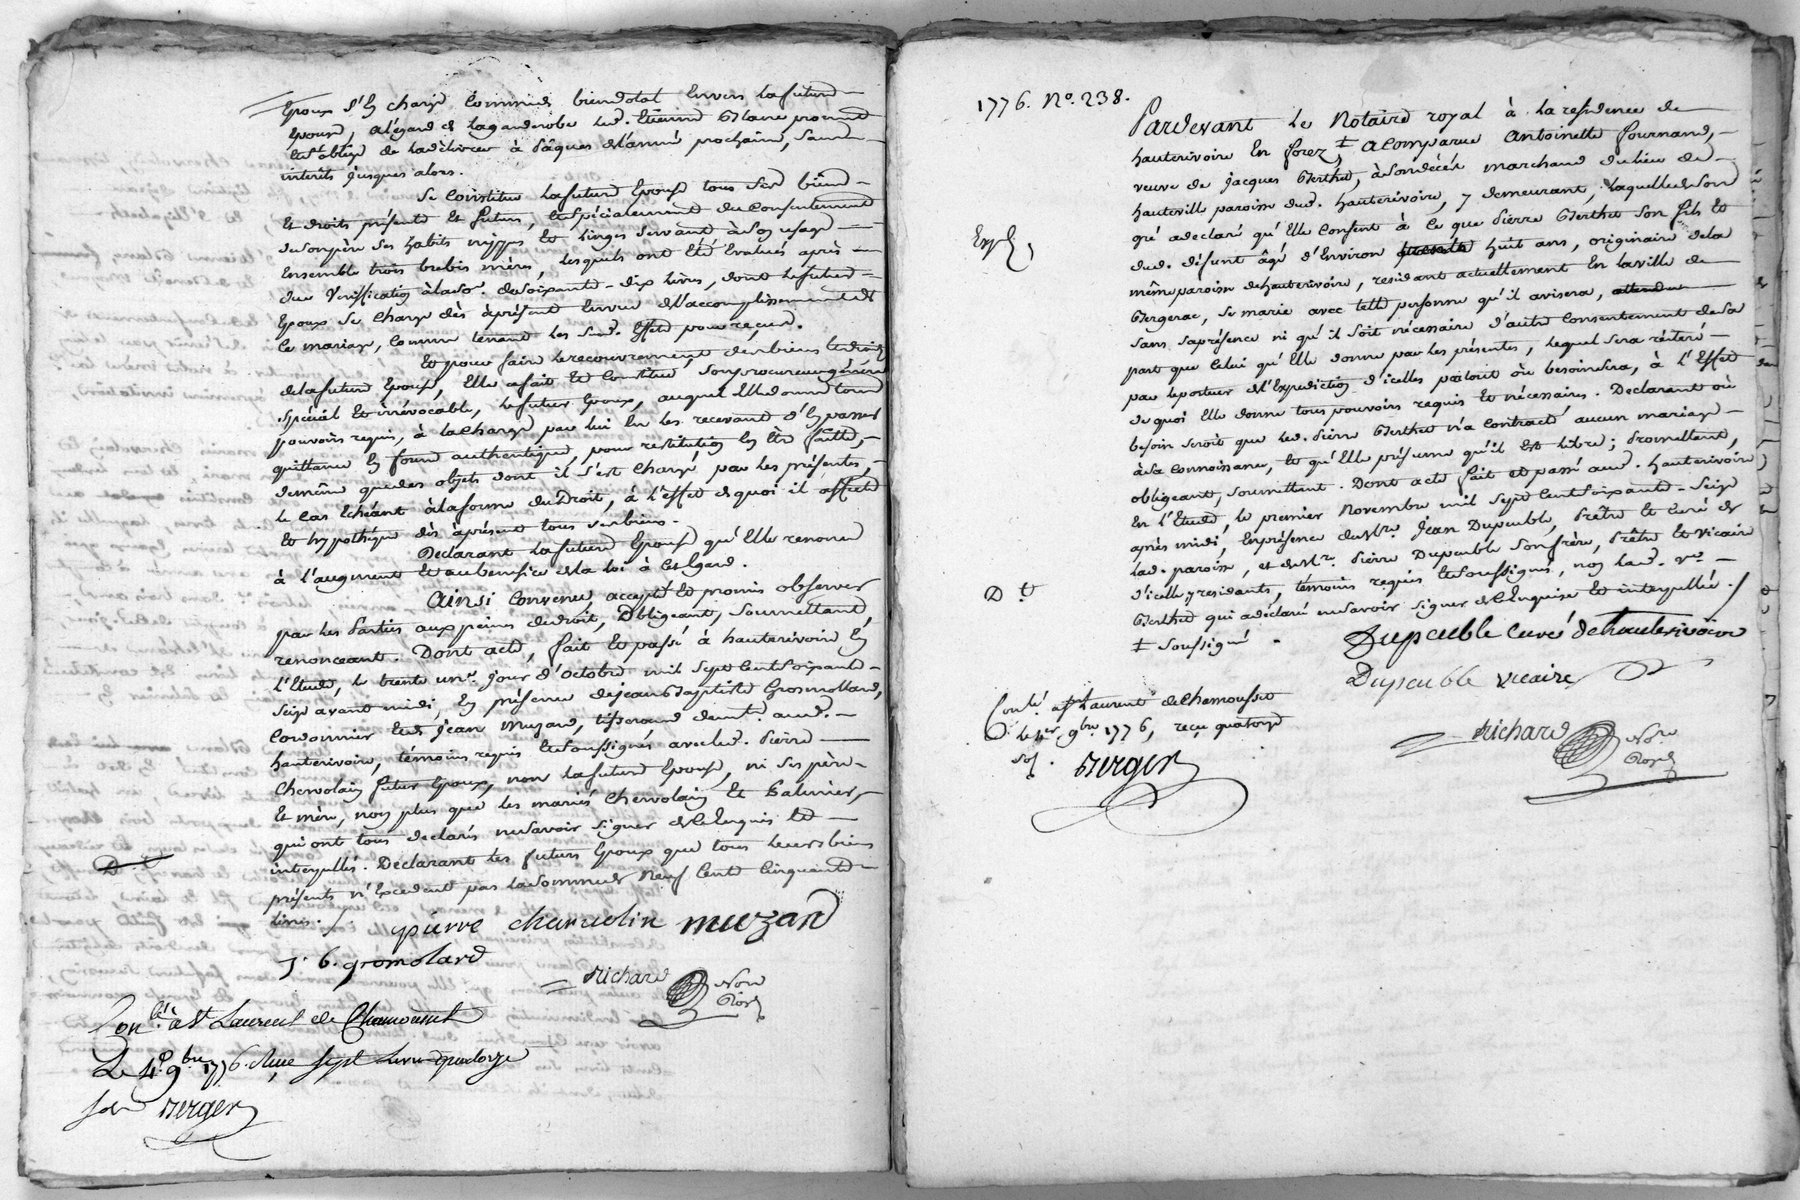 Epoux s'en charge comme de bien dotal envers la future
Epouse, a l'égard de la garderobe led. Etienne Blanc promet
et s'oblige de la délivrer à Pâques de l'année prochaine, sans
interêts jusques alors.
Se constitue la future Epouse tous ses biens
Et droits présents et futurs, et spécialement du consentement
de son père ses habits nippes et linges servant à son usage
Ensemble trois brebis mères, lesquels ont été évalués après
due vérification à la so. de soixante-dix livres, dont le futur
Epoux se charge dès à présent envue de l'accomplissement de
ce mariage, comme tenant les susd. effets pour reçus.
Et pour faire le recouvrement des biens et droits
de la future Epouse, Elle a fait et constitué son procureur général
spécial et irrévocable, le futur Epoux, auquel elle donne tous
pouvoirs requis, à la charge par lui en les recevant d'en passer
quittance en forme authentique, pour restitution en être faitte,
de même que des objets dont il s'est chargé par les présentes,
le cas échéant à la forme du Droit, à l'effet de quoi il affecte
Et hypothèque dès à présent tous ses biens.
Declarant la future Epouse qu'Elle renonce
à l'augment et au benefice de la loi à cet égard.
Ainsi convenu accepté et promis observer
par les Parties aux peines de droit, Obligeant, soumettant,
renonceant. Dont acte, fait et passé à hauterivoire en
l'Etude, le trente un.e jour d'octobre mil sept cent soixante-
seize avant midi, en présence de jean Baptiste Gromollard,
cordonnier et de Jean Muzard, tisserand demt. aud.
hauterivoire, témoins requis et soussignés avec led. Pierre
Chervolin futur Epoux, non la future Epouse, ni ses père
Et mère, non plus que les mariés Chervolin et Palmier,
qui ont tous déclarés ne savoir signer de ce enquis et
interpellés. Declarant les futurs Epoux que tous leurs biens
présents n'excedent pas la somme de Neuf Cent Cinquante
livres.
D.
pierre charvolin muzard
J. b. gromolard
Richard Nore Royl
Conlé à St Laurent de Chamousset
Le 4e 9bre 1776. Reçu sept livres quatorze
sols Berger
1776. No. 238.
Pardevant le Notaire royal à la residence de
hauterivoire en forez ‡ a comparue Antoinette Journand,
veuve de Jacques Berthet, à son décés marchand du lieu de
hauteville paroisse dud. hauterivoire, y demeurant, laquelle de son
gré a declaré qu'Elle consent à ce que Pierre Berthet son fils et
dud. défunt âgé d'Environ huit ans, originaire de la
même paroisse de hauterivoire, residant actuellement en la ville de
Bergerac, se marie avec telle personne qu'il avisera,
sans sa présence ni qu'il soit nécessaire d'autre consentement de sa
part que celui qu'Elle donne par les présentes, lequel sera réiteré
par le porteur de l'Expedition d'icelles partout où besoin sera, à l'Effet
de quoi Elle donne tous pouvoirs requis et nécessaires. Declarant où
besoin seroit que led. Pierre Berthet n'a contracté aucun mariage
à sa connoissance, et qu'Elle présume qu'il est libre; Promettant,
obligeant, soumettant. Dont acte fait et passé aud. hauterivoire
En l'Etude, le premier Novembre mil sept cent soixante-seize
après midi, En présence de Mre. Jean Dupeuble, Prêtre et curé de
lad. paroisse, et de Mre. Pierre Dupeuble son frère, Prêtre et vicaire
d'icelle y residants, témoins requis et soussignés, non lad. ve.
Berthet qui a déclaré ne savoir signer de ce enquise et interpellée.
‡ soussigné
Exp.
D t
Dupeuble curé de hauterivoire
Dupeuble vicaire
Conlé à St Laurent de Chamousset
le 4er 9bre 1776, reçu quatorze
sols. Berger
Richard Nore Royl